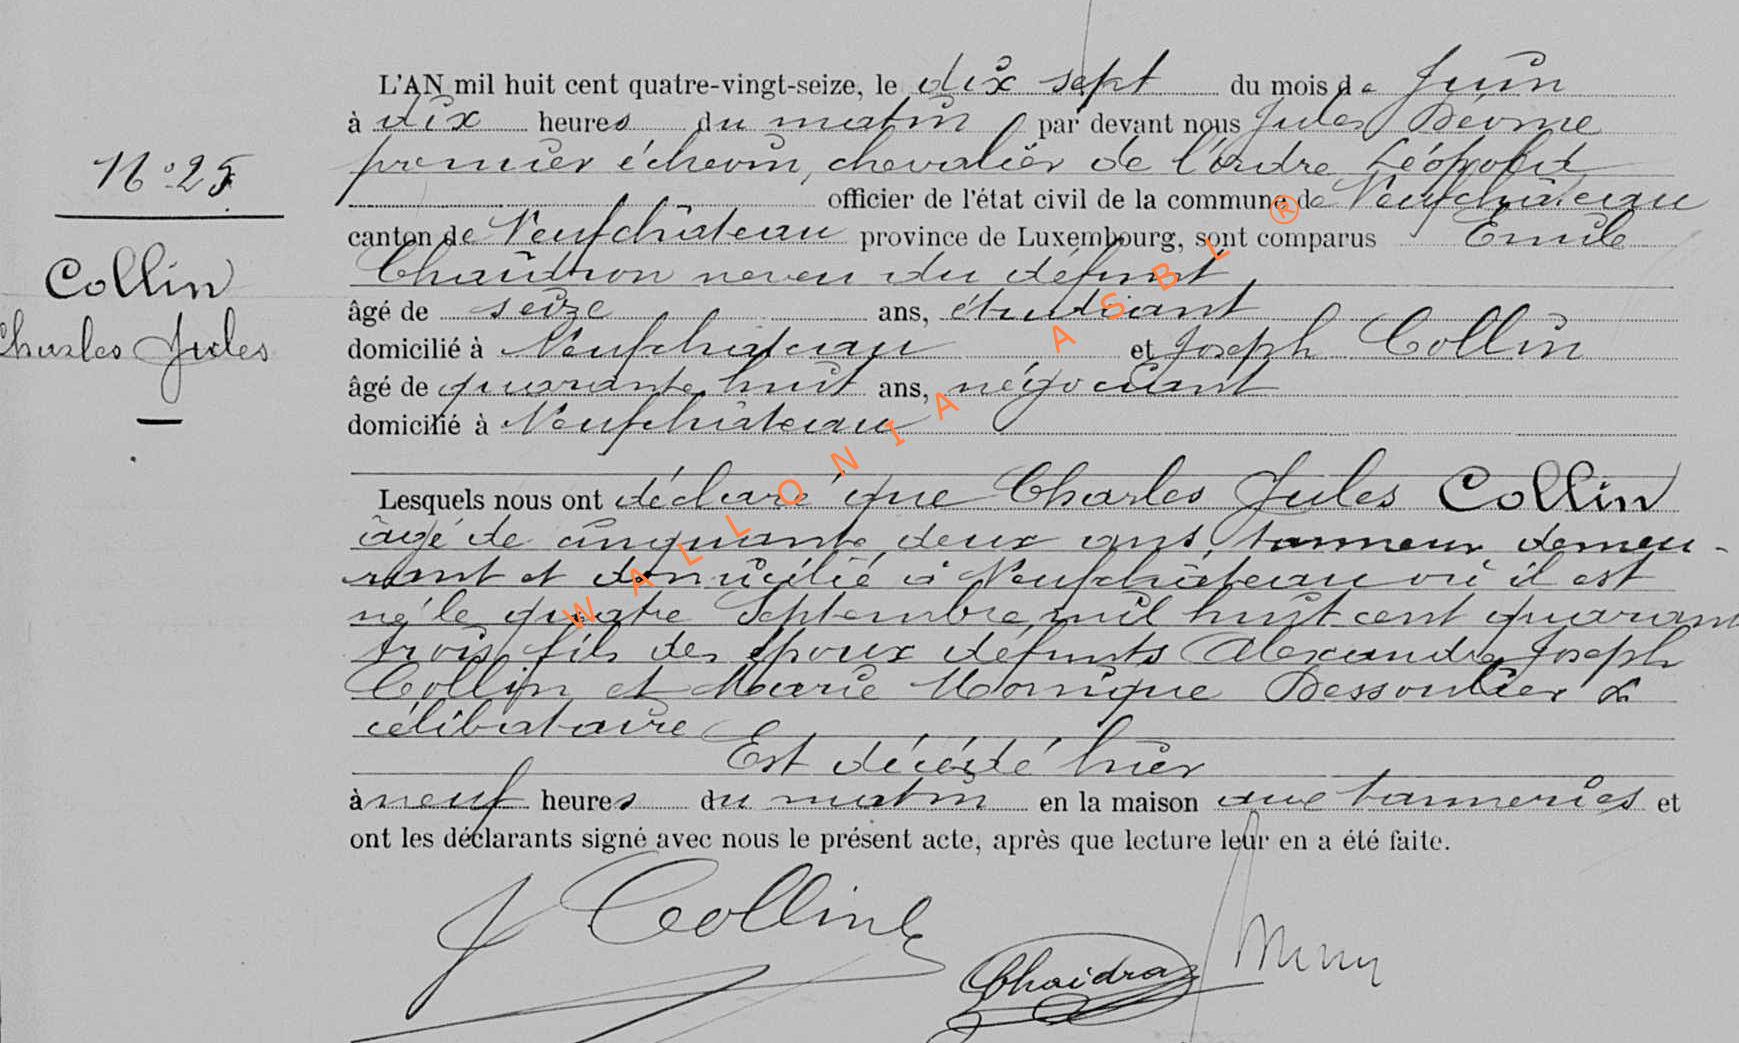 L'AN mil huit cent quatre-vingt-seize, le dix sept du mois de Juin
à dix heures du matin par devant nous Jules
premier échevin, chevalier de l'ordre Léopold
officier de l'état civil de la commune de Neufchâteau
canton de Neufchâteau province de Luxembourg, sont comparus Emile
Chaidron neveu du défunt
âgé de seize ans, étudiant
domicilié à Neufchâteau et Joseph Collin
âgé de quarante huit ans, négociant
domicilié à Neufchâteau
N° 25
Collin
Charles Jules
Lesquels nous ont déclaré que Charles Jules Collin
âgé de cinquante deux ans, tanneur demeu-
rant et domicilié à Neufchâteau où il est
né le quatre Septembre mil huit cent quarante
trois, fils des époux défunts Alexandre Joseph
Collin et Marie Monique Dessoullier &
célibataire
Est décédé hier
à neuf heures du matin en la maison aux tanneries et
ont les déclarants signé avec nous le présent acte, après que lecture leur en a été faite.
J Collin
Chaidron
WALLONIA ASBL ®